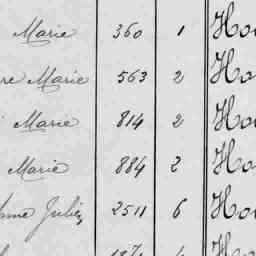 Marie 360 1 Ho
re Marie 563 2 Ho
Marie 814 2 Ho
Marie 884 2 Ho
nne Julie 2511 6 Ho